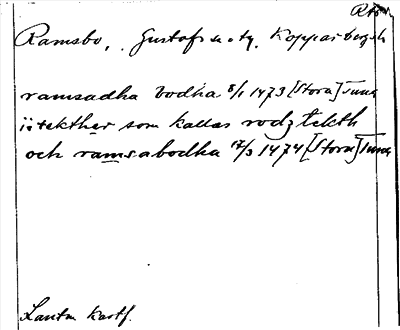 Ramsbo, Gustafs sn. o. tg. Kopparbergs l.
ramsadha bodha 8/1 1473 [Stora] Tuna
i: tekther som kallas rodz tekth
och ramsabodha 17/3 1474 [Stora] Tuna
Lantm. kartf.